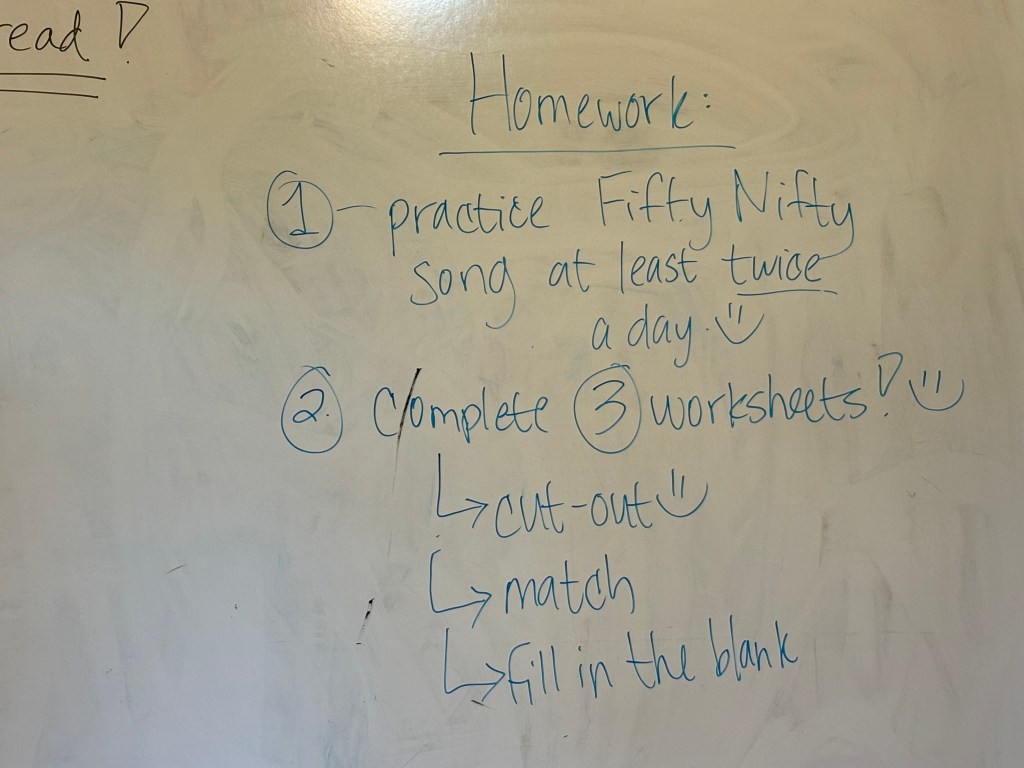 read!
Homework:
1 - practice Fifty Nifty
song at least twice
a day.
2. Complete 3 worksheets!
↳ cut-out
↳ match
↳ fill in the blank